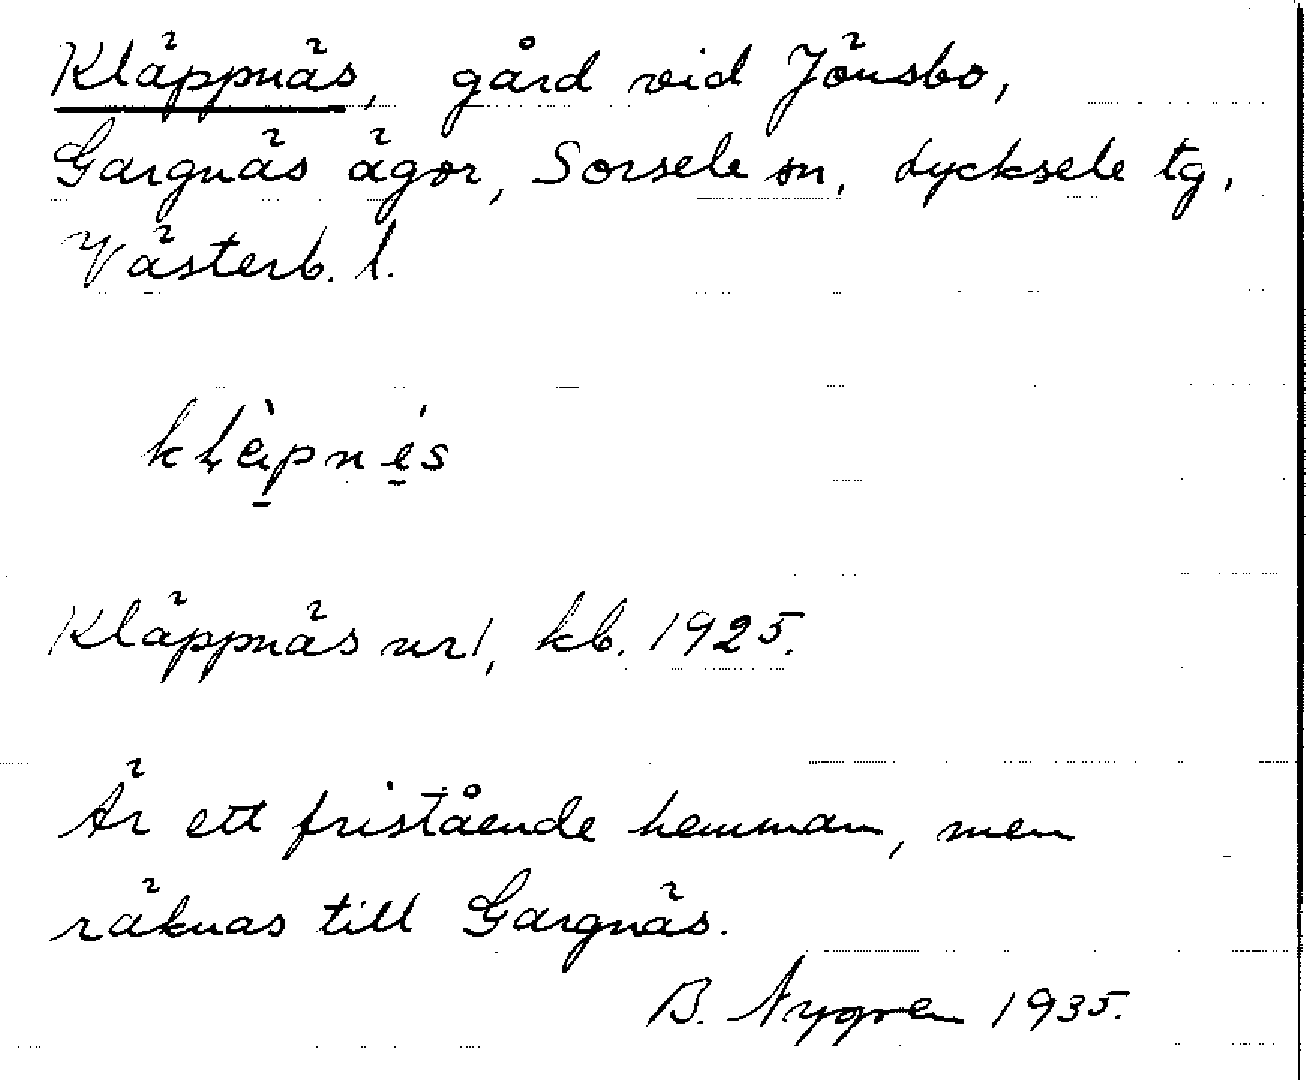 Kläppnäs, gård vid Jönsbo,
Gargnäs ägor, Sorsele sn, Lycksele tg,
Västerb. l.
klèpnés
Kläppnäs nr1, kb. 1925.
Är ett fristående hemman, men
räknas till Gargnäs.
B. Nygren 1935.